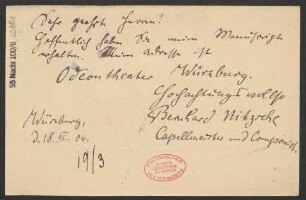 Sehr geehrte Herren!
Hoffentlich haben Sie meine Manuscripte
erhalten. Meine Adresse ist
Odeontheater Würzburg.
Hochachtungsvollst
Bernhard Nitzsche
Capellmeister und Componist.
Würzburg,
d. 18. III. 04.
19/3